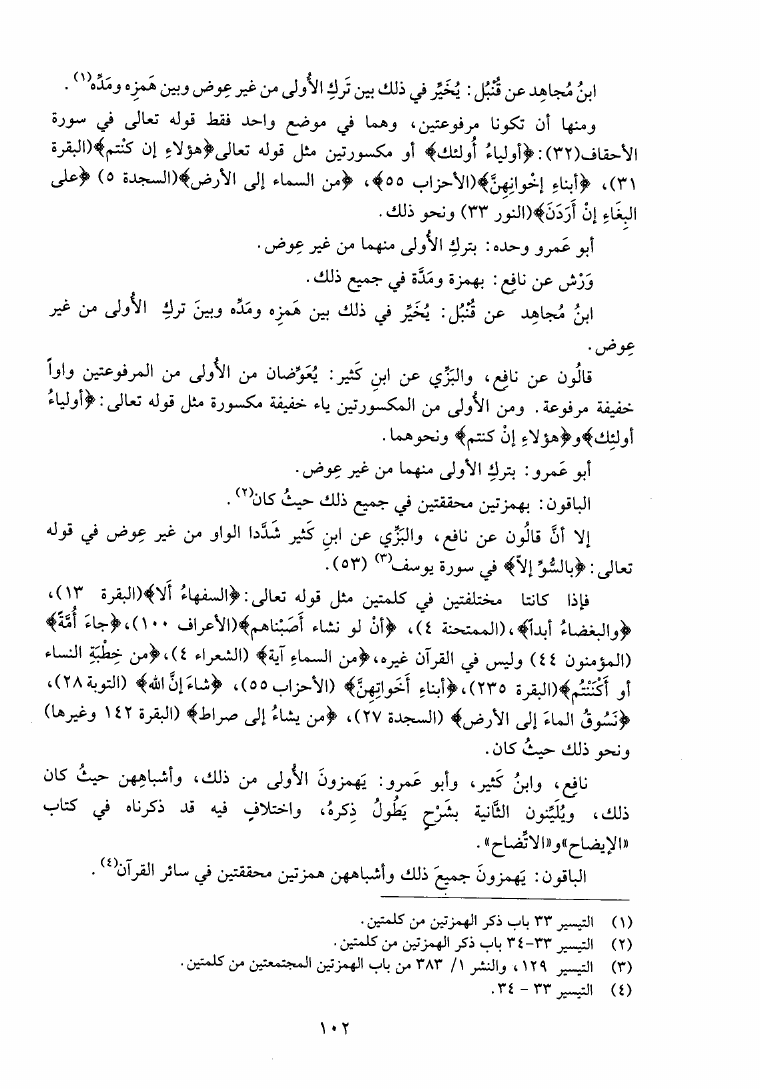 ابنُ مُجاهِد عن قُنْبُل: يُخَيِّر في ذلك بين تَركِ الأُولى من غير عِوض وبين هَمزِه ومَدِّه(١).
ومنها أن تكونا مرفوعتين، وهما في موضع واحد فقط قوله تعالى في سورة
الأحقاف(٣٢):﴿أولياءُ أُولئك﴾ أو مكسورتين مثل قوله تعالى﴿هؤلاءِ إن كنْتم﴾(البقرة
٣١)، ﴿أبناءِ إخْوانِهِنَّ﴾(الأحزاب ٥٥)، ﴿من السماء إلى الأرض﴾(السجدة ٥) ﴿على
البِغَاءِ إنْ أَرَدَنَ﴾(النور ٣٣) ونحو ذلك.
أبو عَمرو وحده: بتركِ الأُولى منهما من غير عِوض.
وَرْش عن نافِع: بهمزة ومَدَّة في جميع ذلك.
ابنُ مُجاهِد عن قُنْبُل: يُخَيِّر في ذلك بين هَمزِه ومَدِّه وبينَ تركِ الأولى من غير
عِوض.
قالُون عن نافع، والبَزِّي عن ابنِ كَثير: يُعَوِّضان من الأُولى من المرفوعتين واواً
خفيفة مرفوعة. ومن الأولى من المكسورتين ياء خفيفة مكسورة مثل قوله تعالى:﴿أولياءُ
أولئِك﴾و﴿هؤلاءِ إنْ كنتم﴾ ونحوهما.
أبو عَمرو: بتركِ الأولى منهما من غير عِوض.
الباقون: بهمزتين محققتين في جميع ذلك حيثُ كان(٢).
إلا أنَّ قالُون عن نافع، والبَزِّي عن ابنِ كَثير شَدَّدا الواو من غير عِوض في قوله
تعالى:﴿بالسُّوِّ إلاّ﴾ في سورة يوسف(٣) (٥٣).
فإذا كانتا مختلفتين في كلمتين مثل قوله تعالى:﴿السفهاءُ ألا﴾(البقرة ١٣)،
﴿والبغضاءُ أبداً﴾،(الممتحنة ٤)، ﴿أنْ لو نشاء أصَبْناهم﴾(الأعراف ١٠٠)،﴿جاءَ أُمَّةً﴾
(المؤمنون ٤٤) وليس في القرآن غيره،﴿من السماءِ آية﴾ (الشعراء ٤)،﴿من خِطْبَةِ النساء
أو أكْنَنْتُم﴾(البقرة ٢٣٥)،﴿أبناءِ أَخَواتِهِنَّ﴾ (الأحزاب٥٥)، ﴿شاءَ إنَّ الله﴾ (التوبة٢٨)،
﴿نَسُوقُ الماءَ إلى الأرض﴾ (السجدة ٢٧)، ﴿من يشاءُ إلى صراط﴾ (البقرة ١٤٢ وغيرها)
ونحو ذلك حيثُ كان.
نافع، وابنُ كَثير، وأبو عَمرو: يَهمزونَ الأُولى من ذلك، وأشباهِهن حيثُ كان
ذلك، ويُلَيِّنون الثَّانية بشَرْحٍ يَطُولُ ذِكرهُ، واختلافٍ فيه قد ذكرناه في كتاب
«الإيضاح»و«الاتِّضاح».
الباقون: يَهمزونَ جميعَ ذلك وأشباههن همزتين محققتين في سائر القرآن(٤).
(١) التيسير ٣٣ باب ذكر الهمزتين من كلمتين.
(٢) التيسير ٣٣-٣٤ باب ذكر الهمزتين من كلمتين.
(٣) التيسير ١٢٩، والنشر ١/ ٣٨٣ من باب الهمزتين المجتمعتين من كلمتين.
(٤) التيسير ٣٣ - ٣٤.
١٠٢